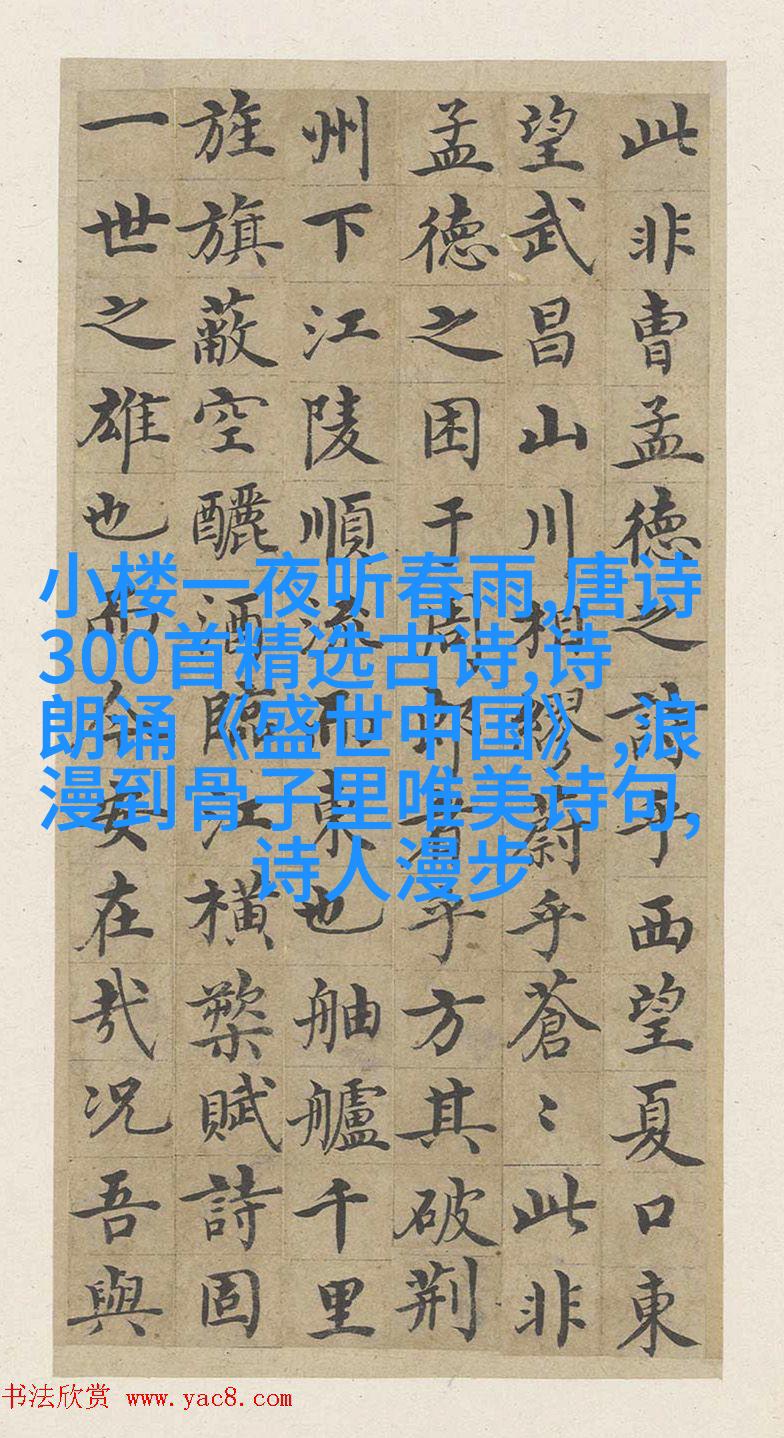 此非曹孟德之詩乎西望夏口東
望武昌山川相繆蔚乎蒼〻此非
孟德之困于周郎者乎方其破荊
州下江陵順流而東也舳艫千里
旌旗蔽空釃酒臨江橫槊賦詩固
一世之雄也而今安在哉況吾與
小楼一夜听春雨,唐诗
300首精选古诗,诗
朗诵《盛世中国》,浪
漫到骨子里唯美诗句,
诗人漫步
书法欣赏 www.yac8.com